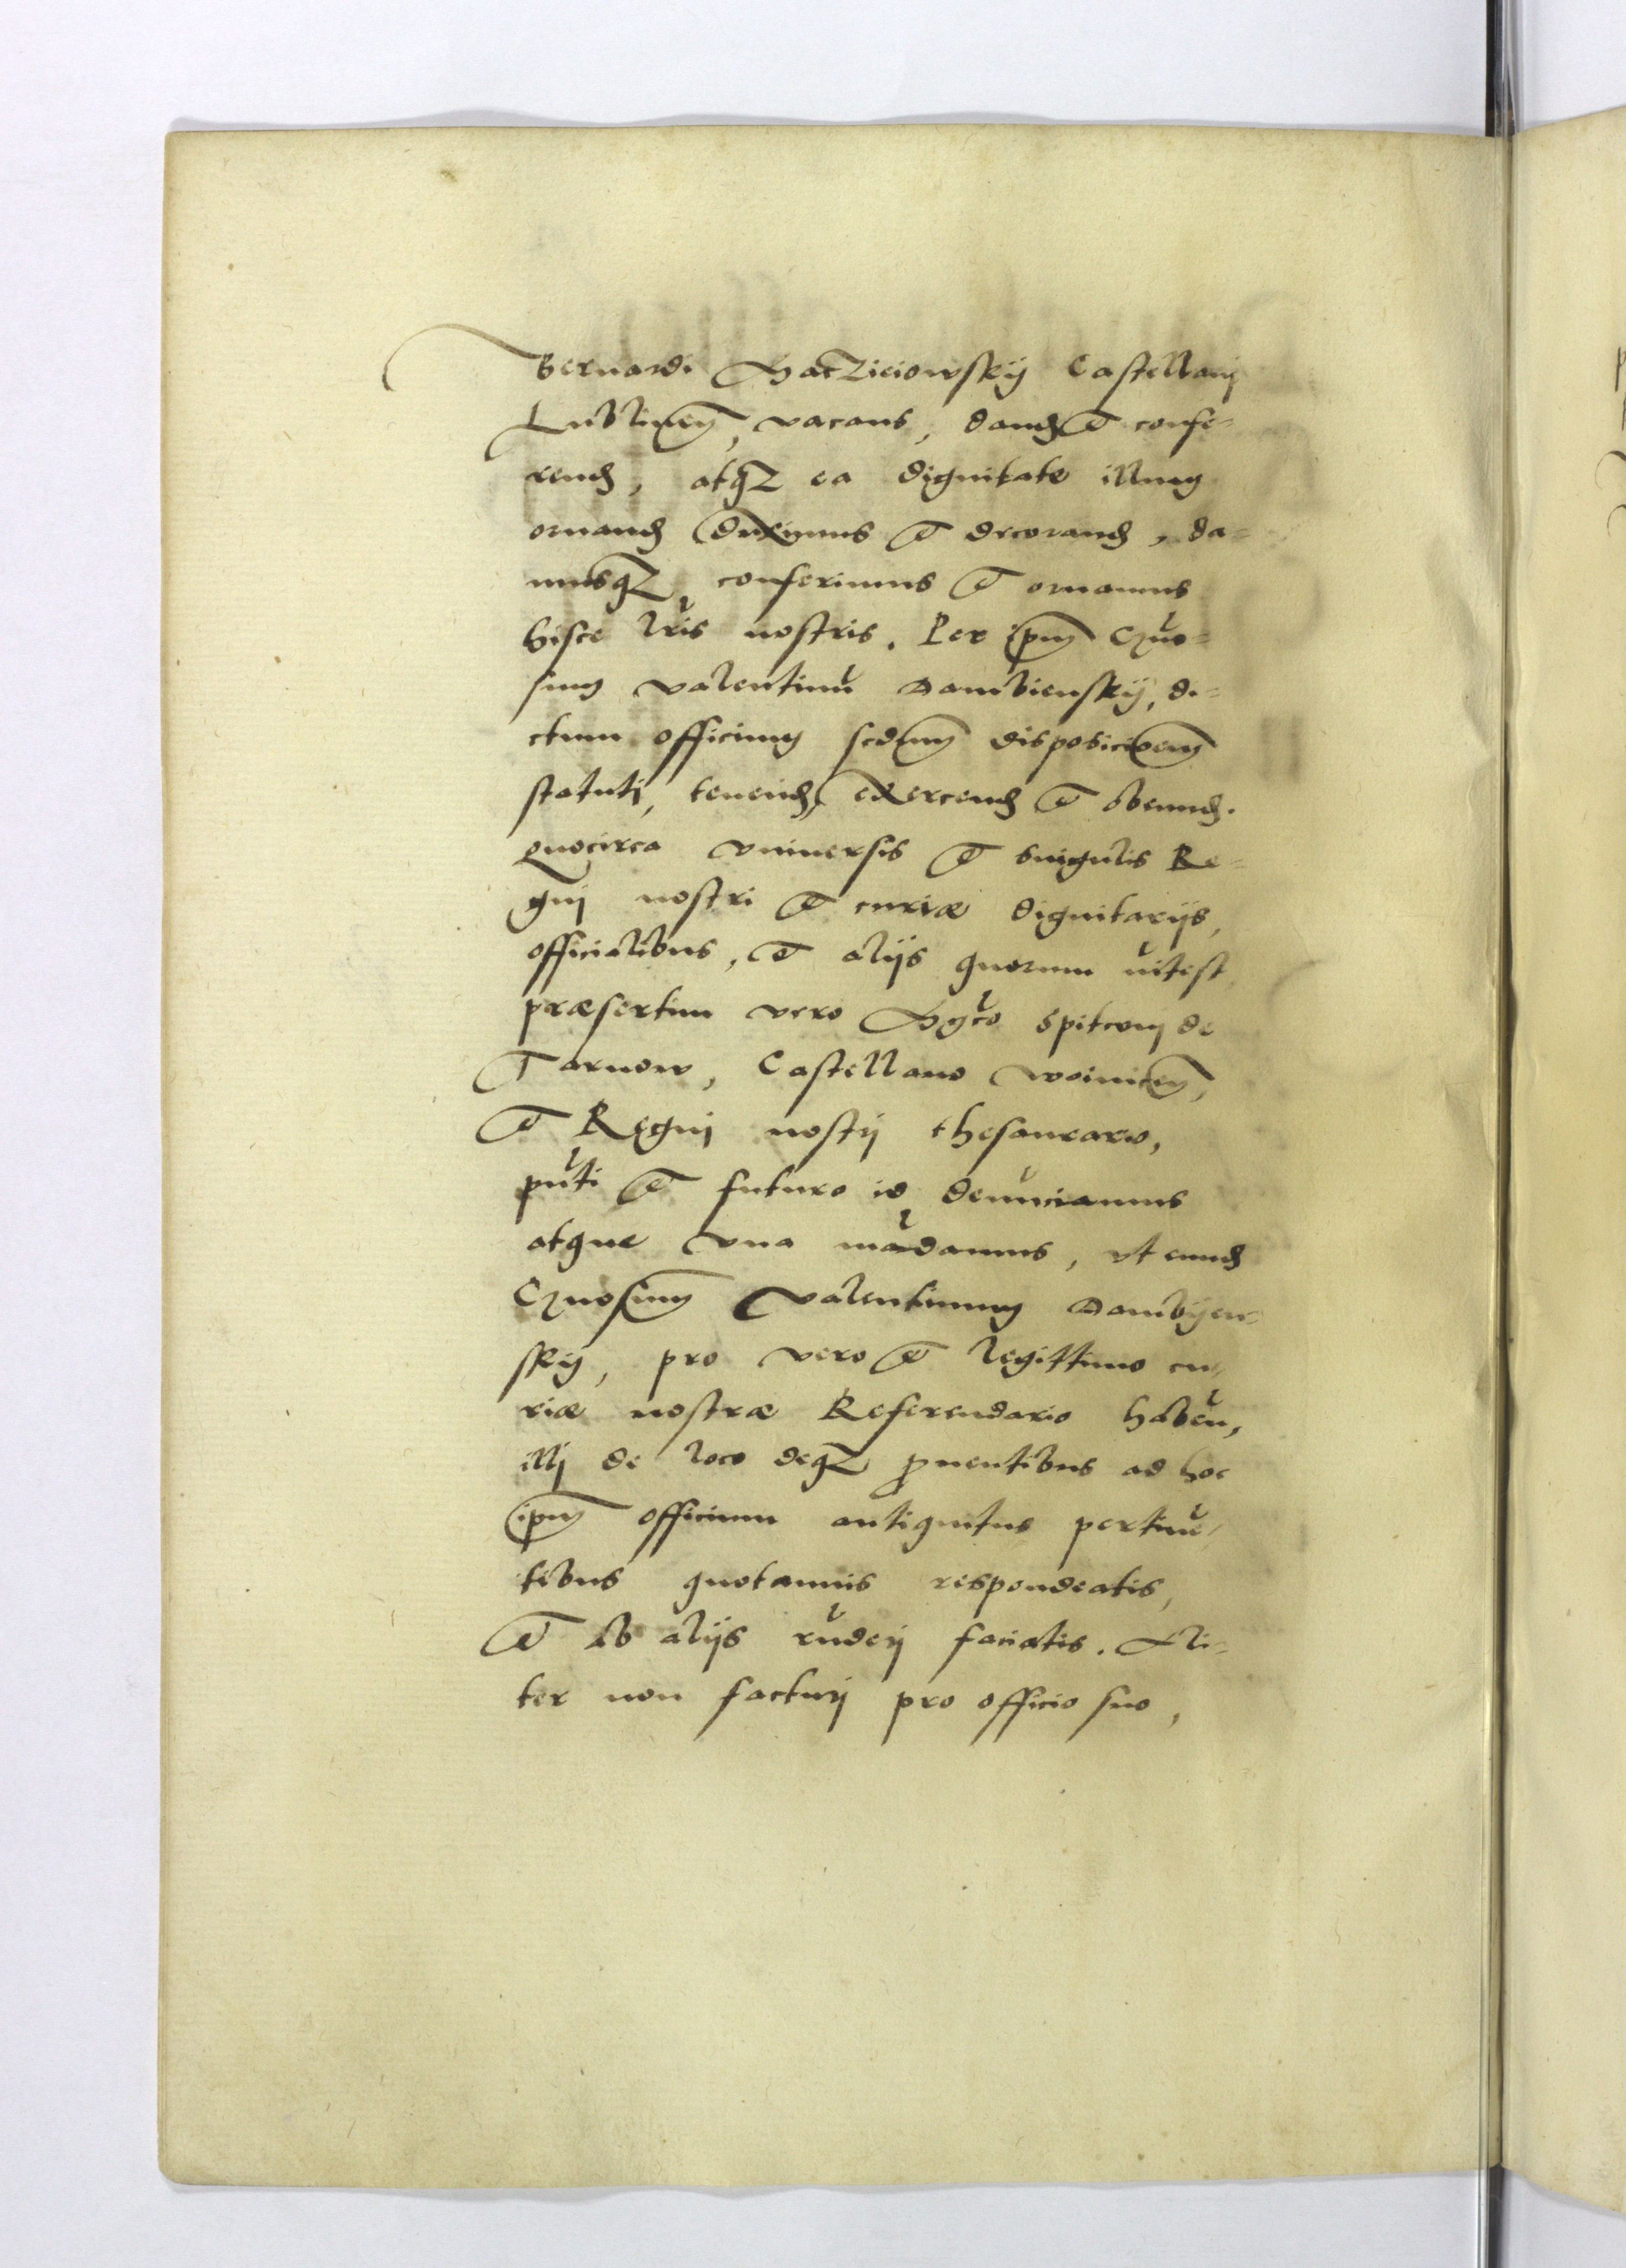 Bernardi Macziciowskÿ Castellanj
Lublinen̄, vacans, dand̨ et confe-
rend̨, atqꝫ ea dignitate illum
ornand̨ duximus et decorand̨, da-
musqꝫ conferimus et ornamus
hisce lr̄is nostris. Per ip̄m Gn̄o-
sum valentinū Dambienskÿ, di-
ctum officium scd̄um dispositionem
statuti, tenend̨, exercend̨ et obeund̨.
Quocirca vniuersis et singulis Re-
gnj nostri et curiæ dignitarijs,
officialibus, et alijs quorum int̄est
præsertim vero Mgco Spitconj de
Tarnow, Castellano woinicen̄,
et Regnj nostrj thesaurario,
pn̄ti et futuro id denūciamus
atque vna mādamus, vt eund̨
Gn̄osum valentinum Dambÿen-
skÿ, pro vero et legittimo cu-
riæ nostræ Referendario haben̄,
illj de loco deqꝫ ꝓuentibus ad hoc
ip̄m officium antiquitus pertinē-
tibus quotannis respondeatis,
et ab alijs rn̄derj faciatis. Ali-
ter non facturj pro officio suo,